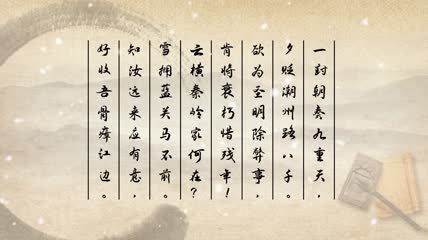 一封朝奏九重天，
夕贬潮州路八千。
欲为圣明除弊事，
肯将衰朽惜残年！
云横秦岭家何在？
雪拥蓝关马不前。
知汝远来应有意，
好收吾骨瘴江边。